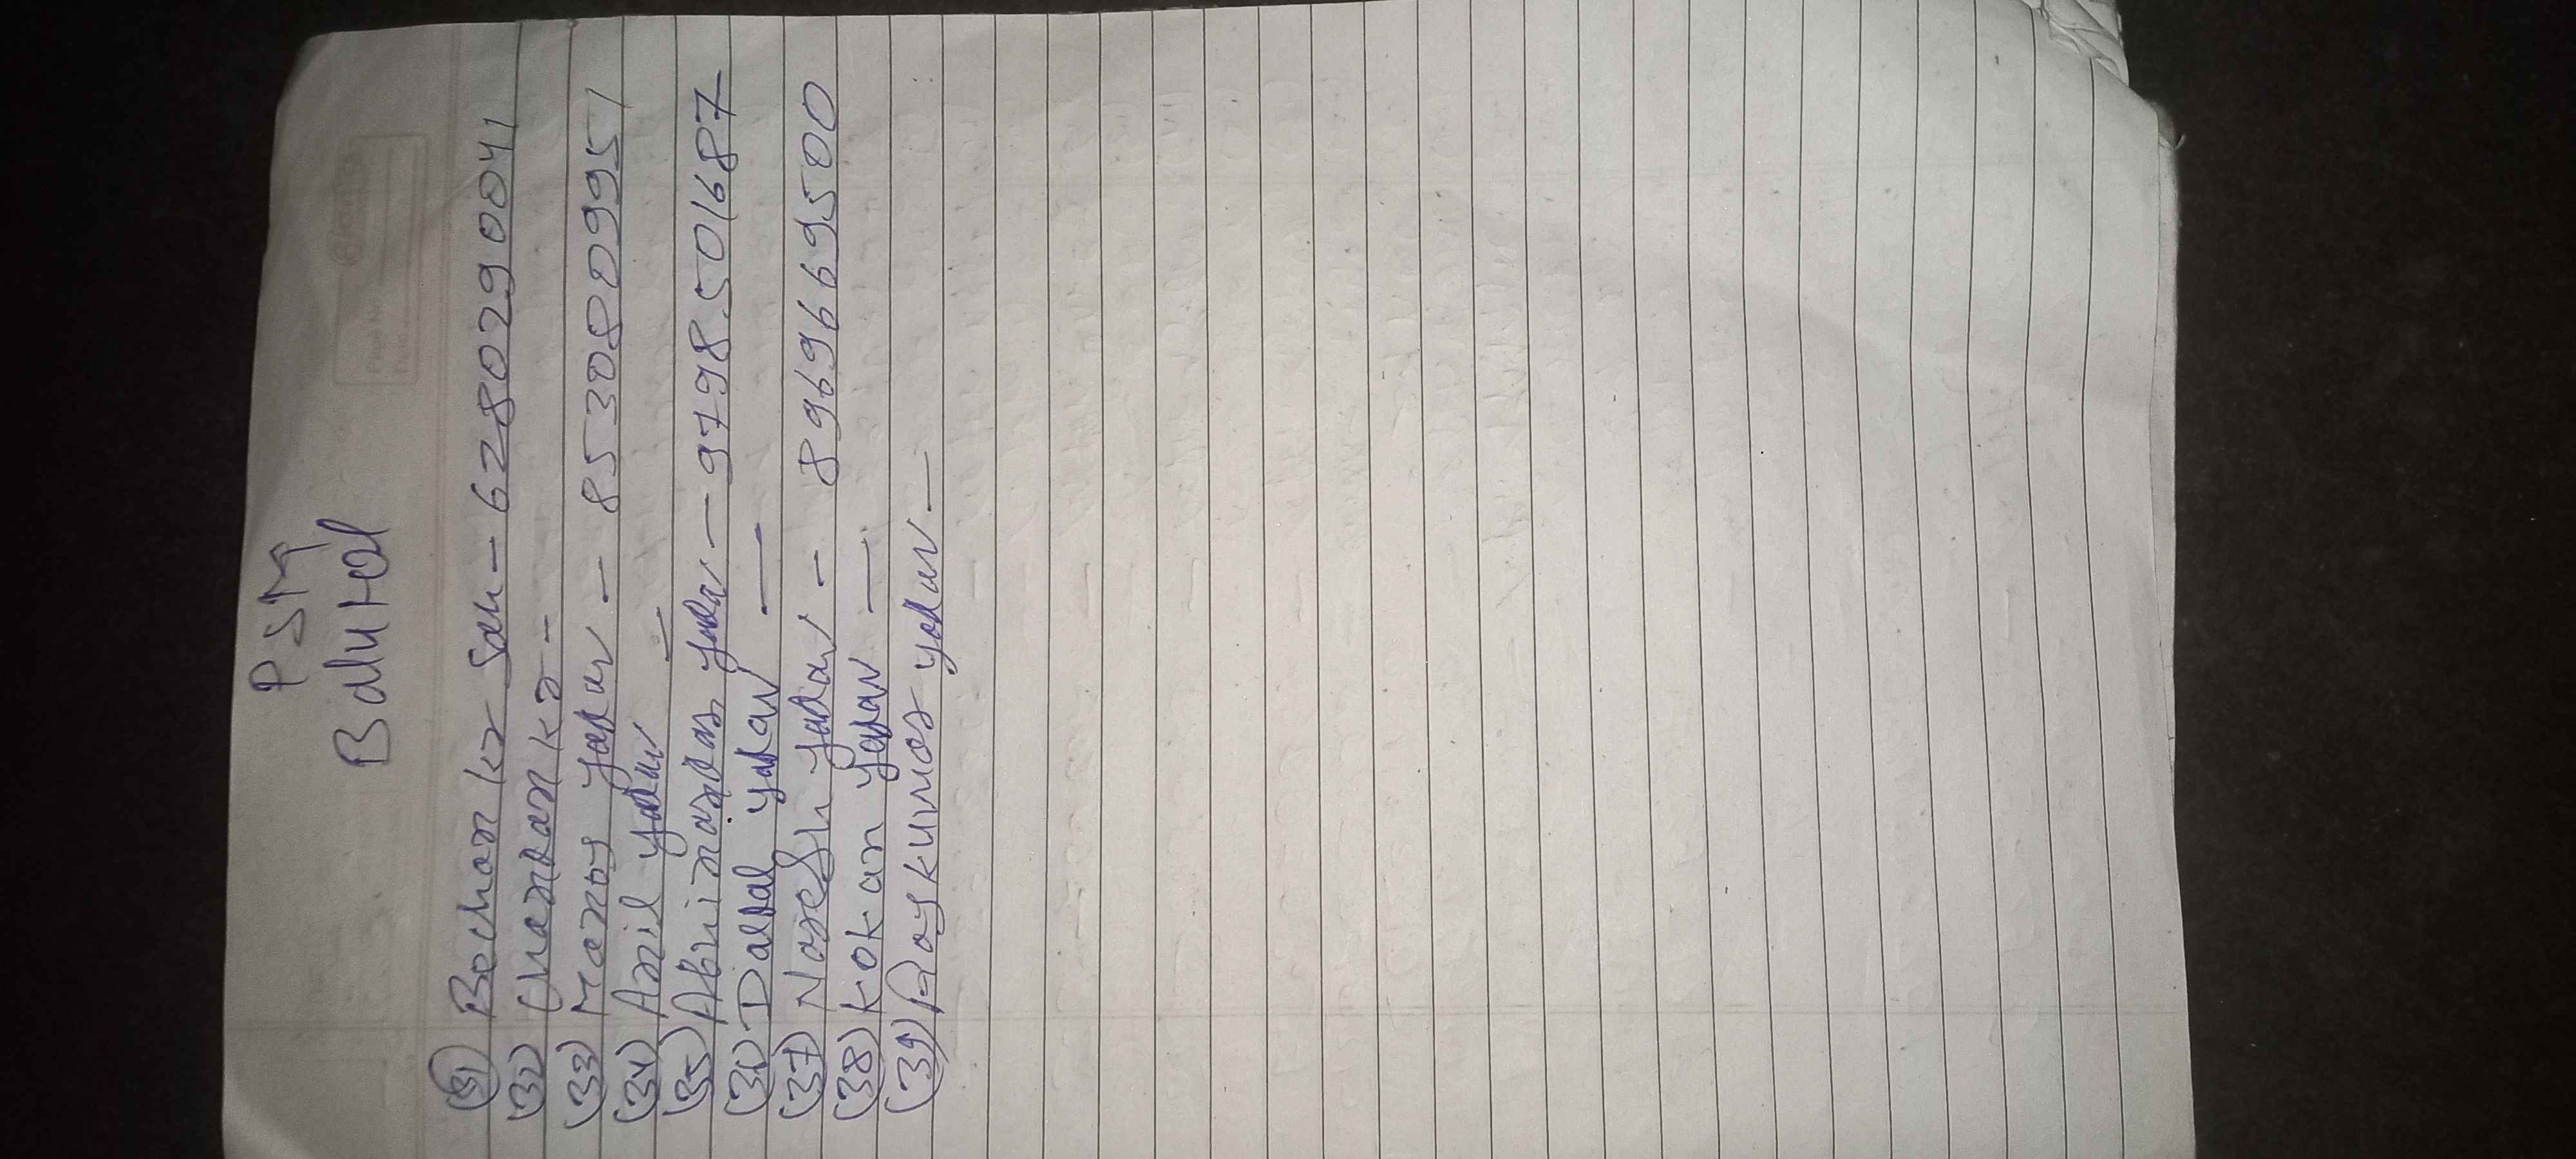 PSM
Baluhal
(31) Bechan kr Sah - 6280290041
(32) Chandan kr -
(33) Manoj yadav - 8530809951
(34) Anil yadav -
(35) Abhinandan yadav - 9798501687
(36) Dallal yadav -
(37) Naresh yadav - 8969669500
(38) Kokan yadav -
(39) Rajkumar yadav -